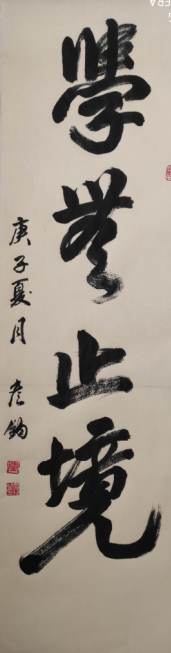 學無止境
庚子夏月